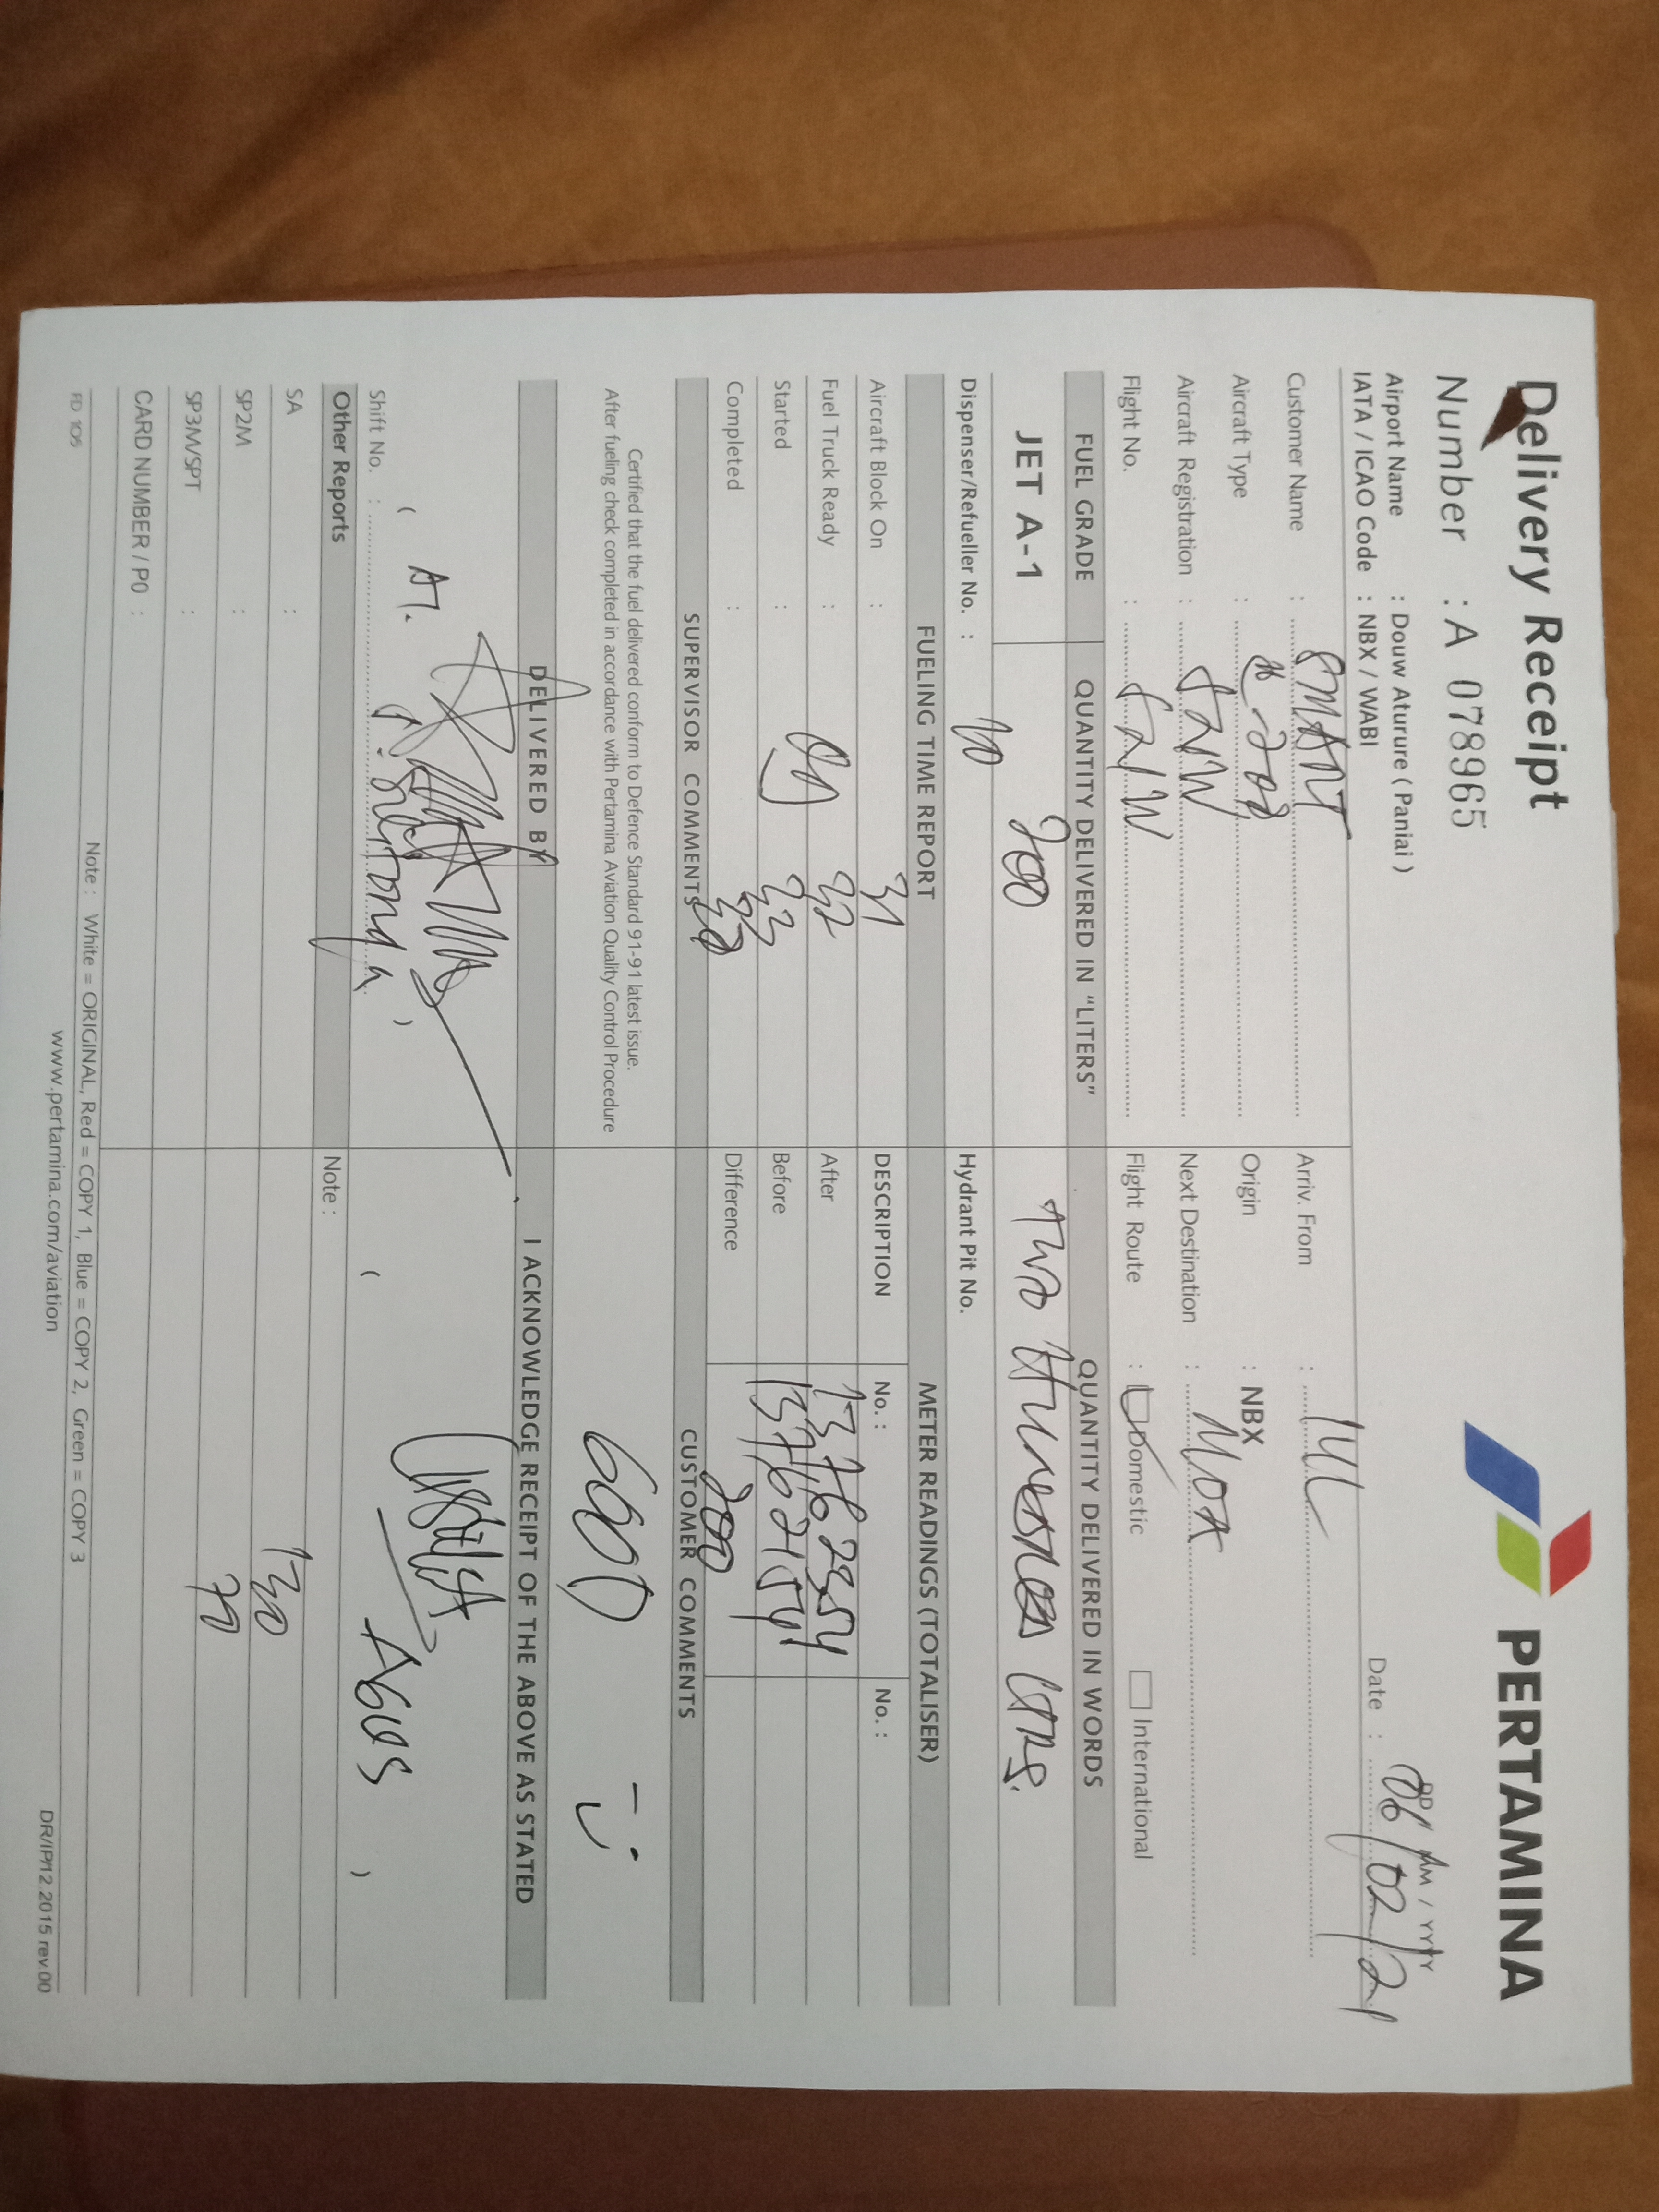 Delivery Receipt
PERTAMINA
Number : A 078965
DD / MM / YYYY
Date : 06/02/21
Airport Name : Douw Aturure ( Paniai )
IATA / ICAO Code : NBX / WABI
Customer Name : SMART
Arriv. From :
Aircraft Type :
Origin : NBX
Aircraft Registration :
Next Destination :
Flight No. :
Flight Route : Domestic International
FUEL GRADE QUANTITY DELIVERED IN "LITERS" QUANTITY DELIVERED IN WORDS
JET A-1 200 Two Hundred
Dispenser/Refueller No. : Hydrant Pit No.
FUELING TIME REPORT METER READINGS (TOTALISER)
Aircraft Block On : 31 DESCRIPTION No. : No. :
Fuel Truck Ready : 32 After
Started : 33 Before
Completed : Difference 200
SUPERVISOR COMMENTS CUSTOMER COMMENTS
Certified that the fuel delivered conform to Defence Standard 91-91 latest issue.
After fueling check completed in accordance with Pertamina Aviation Quality Control Procedure
DELIVERED BY I ACKNOWLEDGE RECEIPT OF THE ABOVE AS STATED
Shift No. : ( ) ( AGUS )
Other Reports Note :
SA :
SP2M : 130
SP3M/SPT : 70
CARD NUMBER / PO :
Note : White = ORIGINAL, Red = COPY 1, Blue = COPY 2, Green = COPY 3
FD 105 www.pertamina.com/aviation DR/IP/12.2015 rev.00